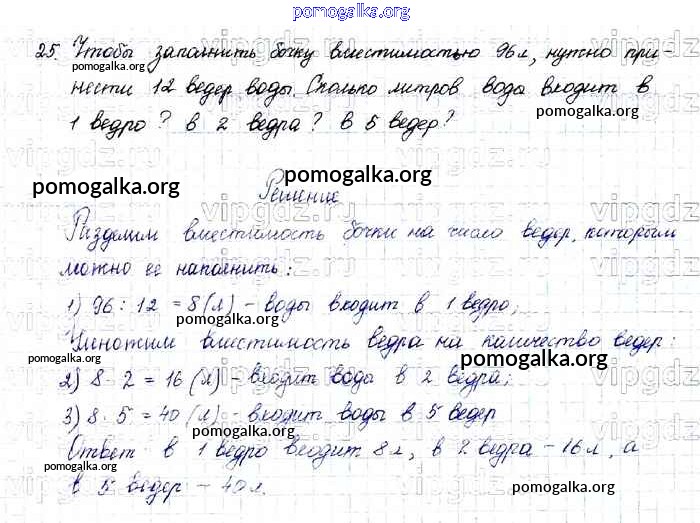 pomogalka.org
25. Чтобы заполнить бочку вместимостью 96 л, нужно при-
pomogalka.org
нести 12 ведер воды. Сколько литров вода входит в
pomogalka.org
pomogalka.org
1 ведро? в 2 ведра? в 5 ведер?
vipgdz.ru
pomogalka.org
pomogalka.org
Решение
Разделим вместимость бочки на число ведер, которым
можно ее наполнить:
1) 96 : 12 = 8 (л) - воды входит в 1 ведро;
Умножим вместимость ведра на количество ведер:
pomogalka.org
pomogalka.org
2) 8 · 2 = 16 (л) - входит воды в 2 ведра;
3) 8 · 5 = 40 (л) - входит воды в 5 ведер
pomogalka.org
Ответ в 1 ведро входит 8 л, в 2 ведра - 16 л, а
pomogalka.org
в 5 ведер - 40 л.
pomogalka.org
pomogalka.org